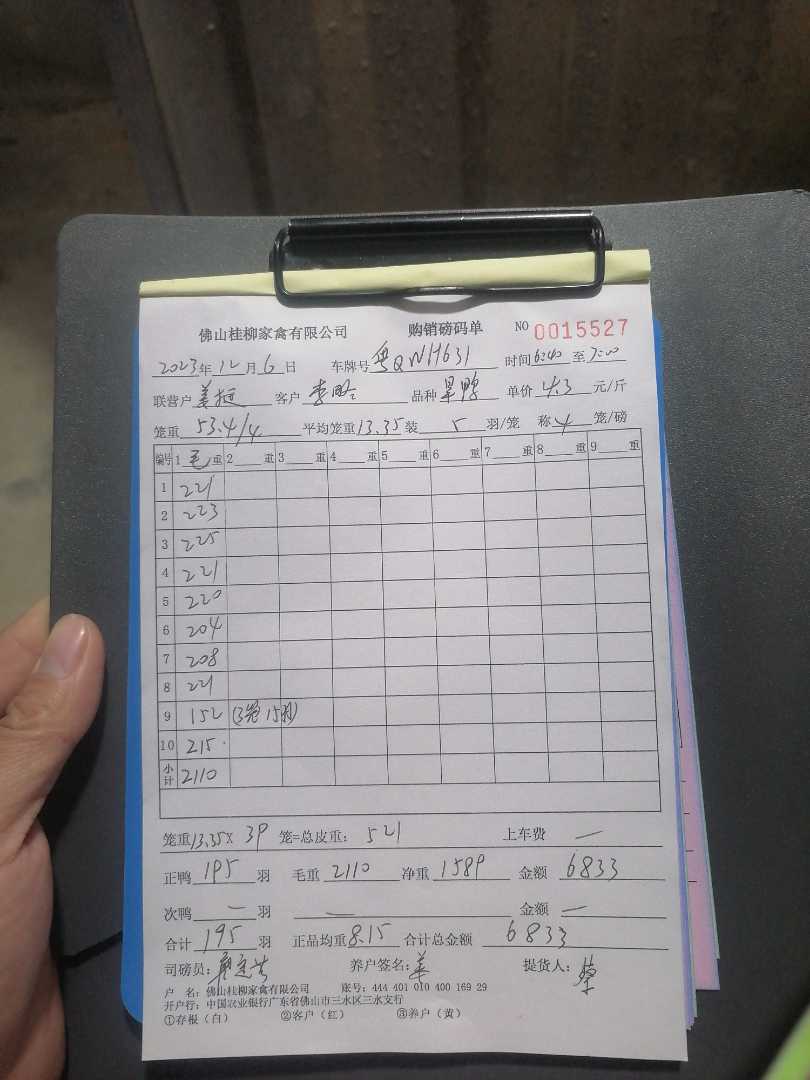 佛山桂柳家禽有限公司 购销磅码单 NO 0015527
2023年12月6日 车牌号 粤QWH631 时间 6:40 至 7:00
联营户 客户 品种 单价 4.3 元/斤
笼重 53.4/4 平均笼重 13.35 装 5 羽/笼 称 4 笼/磅
编号 1 毛 重 2 重 3 重 4 重 5 重 6 重 7 重 8 重 9 重
1 221
2 223
3 225
4 221
5 220
6 204
7 208
8 221
9 152 (3笼 15羽)
10 215
小计 2110
笼重 13.35 X 39 笼=总皮重: 521 上车费 —
正鸭 195 羽 毛重 2110 净重 1589 金额 6833
次鸭 — 羽 — 金额 —
合计 195 羽 正品均重 8.15 合计总金额 6833
司磅员: 养户签名: 提货人:
户 名: 佛山桂柳家禽有限公司 账号: 444 401 010 400 169 29
开户行: 中国农业银行广东省佛山市三水区三水支行
①存根（白） ②客户（红） ③养户（黄）